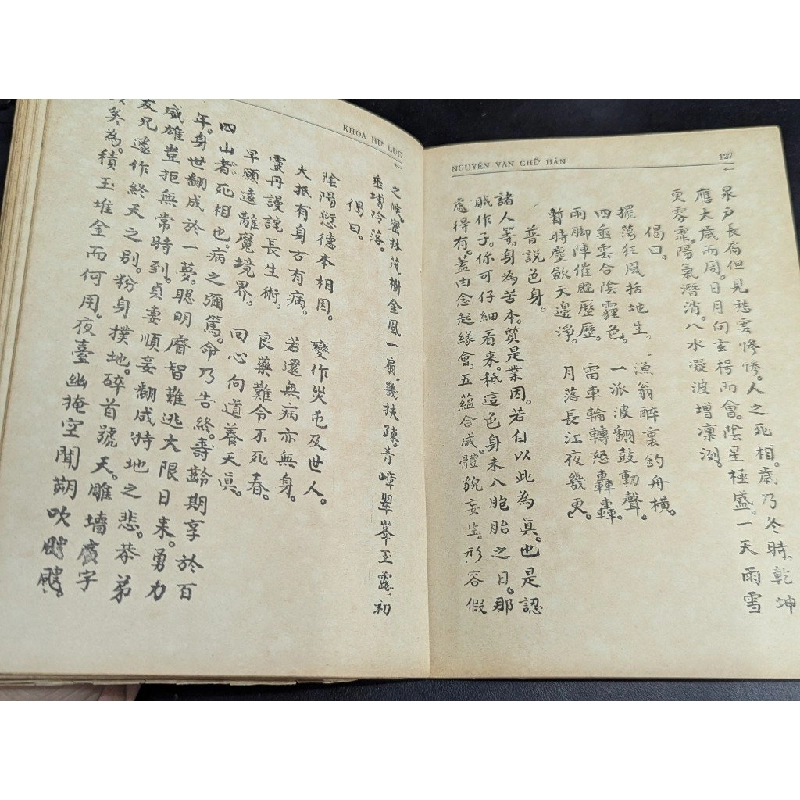 KHOA HƯ LỤC
金風一扇
翠峯玉露初
偈曰。
陰陽愆德本相因。 變作災屯及世人。
大抵有身方有病。 若還無病亦無身。
靈丹謾詫長生術。 良藥難令不死春。
早願遠離魔境界。 回心向道養天真。
四山者死相也。病之彌篤。命乃告終。壽齡期享於百
年。身世翻成於一夢。聰明睿智難逃大限日來。勇力
威雄豈拒無常時到。貞妻順妾翻成特地之悲。恭弟
友死遽作終天之別。粉身撲地。碎首號天。雕墻廣宇
矣為。積玉堆金而何用。夜臺幽掩空聞朔吹颼飀。
NGUYÊN VĂN CHỮ HÁN 127
泉戶長扃但見愁雲慘慘。人之死相。歲乃冬時。乾坤
應大歲而周。日月向玄枵而會。陰星極盛。一天雨雪
更雰霏。陽氣潛消。八水凝波增凜冽。
偈曰。
擺落狂風括地生。 漁翁醉裏釣舟橫。
四垂雲合陰霾色。 一派波翻鼓動聲。
雨腳陣催歷歷。 雷車輪轉急轟轟。
暫時塵歇天邊淨。 月落長江夜幾更。
普說色身。
諸人等。身為苦本。質是業因。若以此為真。也是認
賊作子。你可仔細看來。秖這色身未入胞胎之日。那
處得有。蓋由念起緣會。五蘊合成。體貌妄生。形容假